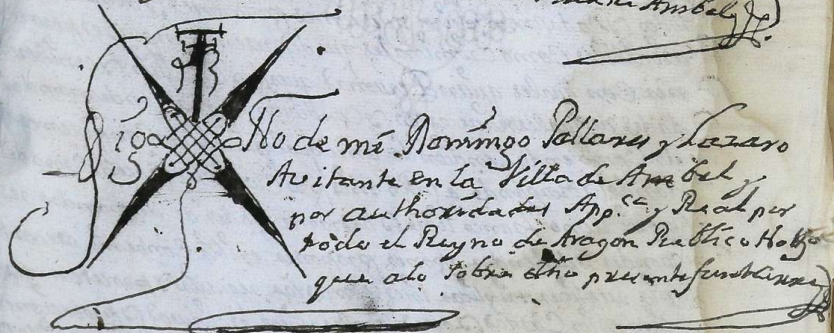 Ambel
Sig No de mẽ Domingo Pallares y Lazaro
Avitante en la Villa de Ambel y
por authoridades App.ca y Real por
todo el Reyno de Aragon Publico Not.o
que a lo sobre dho presente